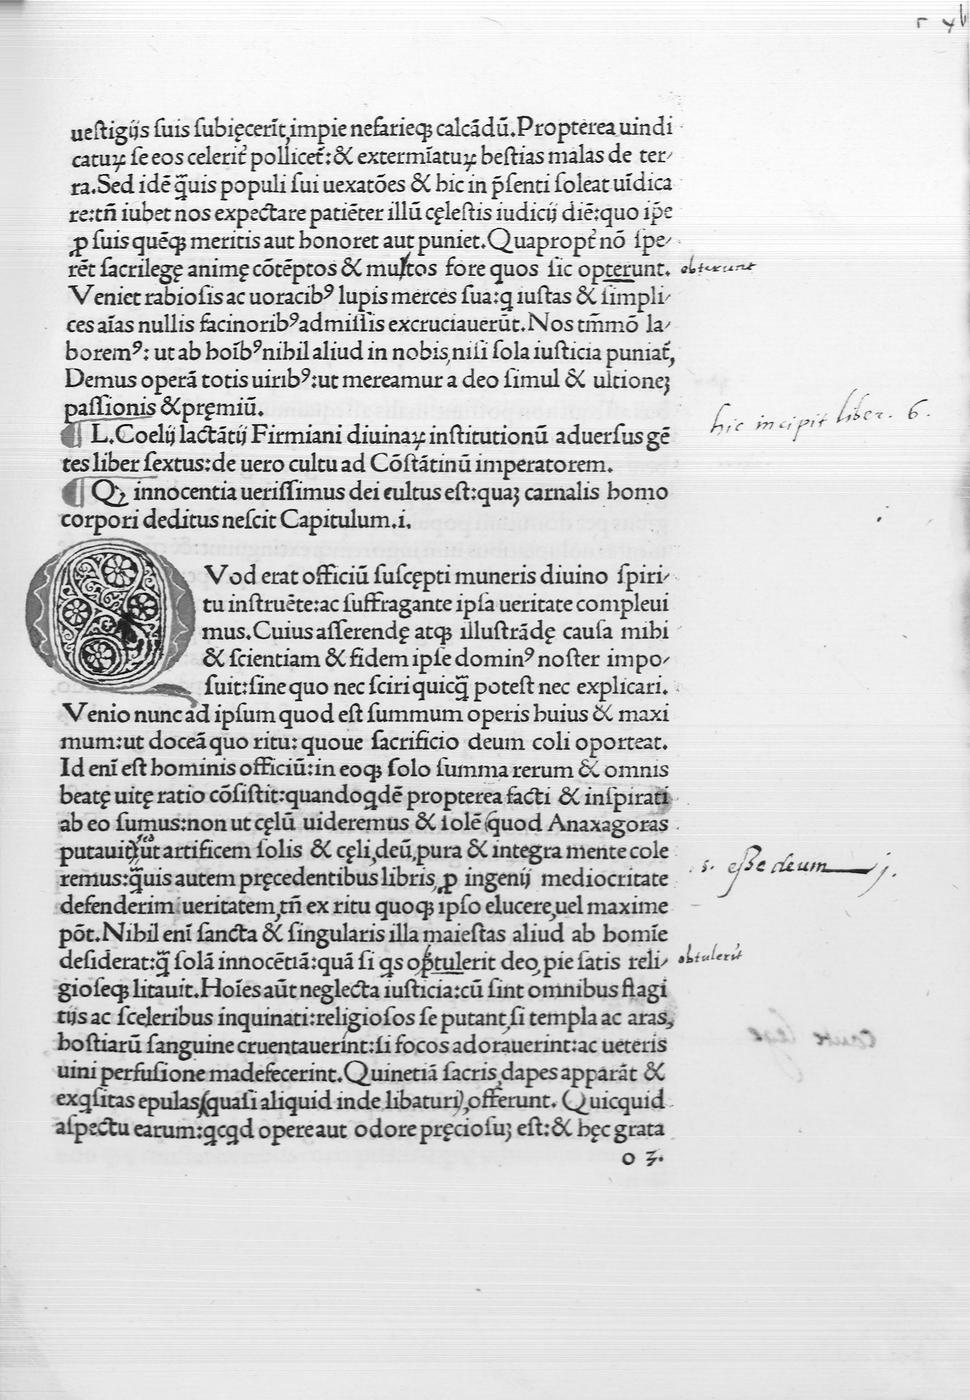 r xv
ueſtigijs ſuis ſubięcerīt,impie nefarieqꝫ calcādū.Propterea uindi
catuꝝ ſe eos celerit̄ pollicet̄:&extermīatuꝝ beſtias malas de ter⸗
ra.Sed idē q̄uis populi ſui uexatōes & hic in p̄ſenti ſoleat uīdica
re:tn̄ iubet nos expectare patiēter illū cęleſtis iudicij diē:quo ip̄e
ꝓ ſuis quēqꝫ meritis aut honoret aut puniet.Quapropt̄ nō ſpe⸗
rēt ſacrilegę animę cōtēptos & multos fore quos ſic opterunt. obterunt
Veniet rabioſis ac uoracibꝰ lupis merces ſua:q iuſtas & ſimpli⸗
ces aīas nullis facinoribꝰadmiſſis excruciauerūt.Nos tm̄mō la⸗
boremꝰ: ut ab hoībꝰnihil aliud in nobis,niſi ſola iuſticia puniat̄,
Demus operā totis uiribꝰ:ut mereamur a deo ſimul & ultioneꝫ
paſſionis &pręmiū.
¶ L.Coelij lactātij Firmiani diuinaꝝ inſtitutionū aduerſus gē hic incipit liber. 6.
tes liber ſextus:de uero cultu ad Cōſtātinū imperatorem.
¶ Qꝫ innocentia ueriſſimus dei cultus eſt:quaꝫ carnalis homo
corpori deditus neſcit Capitulum.i.
QVod erat officiū ſuſcępti muneris diuino ſpiri⸗
tu inſtruēte:ac ſuffragante ipſa ueritate compleui
mus.Cuius aſſerendę atqꝫ illuſtrādę cauſa mihi
& ſcientiam & fidem ipſe dominꝰ noſter impo⸗
ſuit:ſine quo nec ſciri quicq̄ poteſt nec explicari.
Venio nunc ad ipſum quod eſt ſummum operis huius & maxi
mum:ut doceā quo ritu: quoue ſacrificio deum coli oporteat.
Id enī eſt hominis officiū:in eoqꝫ ſolo ſumma rerum & omnis
beatę uitę ratio cōſiſtit:quandoqdē propterea facti & inſpirati
ab eo ſumus:non ut cęlū uideremus & ſolē (quod Anaxagoras
putauit)ut artificem ſolis & cęli,deū,pura & integra mente cole s. eſſe deum
remus:q̄uis autem pręcedentibus libris,ꝓ ingenij mediocritate
defenderim ueritatem,tn̄ ex ritu quoqꝫ ipſo elucere,uel maxime
pōt.Nihil enī ſancta & ſingularis illa maieſtas aliud ab homīe
deſiderat:q̄ ſolā innocētiā:quā ſi qs optulerit deo,pie ſatis reli⸗ obtulerit
gioſeqꝫ litauit.Hoīes aūt neglecta iuſticia:cū ſint omnibus flagi
tijs ac ſceleribus inquinati:religioſos ſe putant,ſi templa ac aras,
hoſtiarū ſanguine cruentauerint:ſi focos adorauerint:ac ueteris
uini perfuſione madefecerint.Quinetiā ſacris,dapes apparāt &
exqſitas epulas(quaſi aliquid inde libaturi),offerunt. Quicquid
aſpectu earum:qcqd opere aut odore pręcioſuꝫ eſt:& hęc grata
o 3.